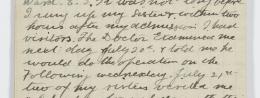 Ward. E. 3. It was not long before
I rung up my sisters & within two
hours after my address I had
visitors. The Doctor Examined me
next day July 20th & told me he
would do the operation on the
Following wednesday, July 21st
two of my sisters visited me